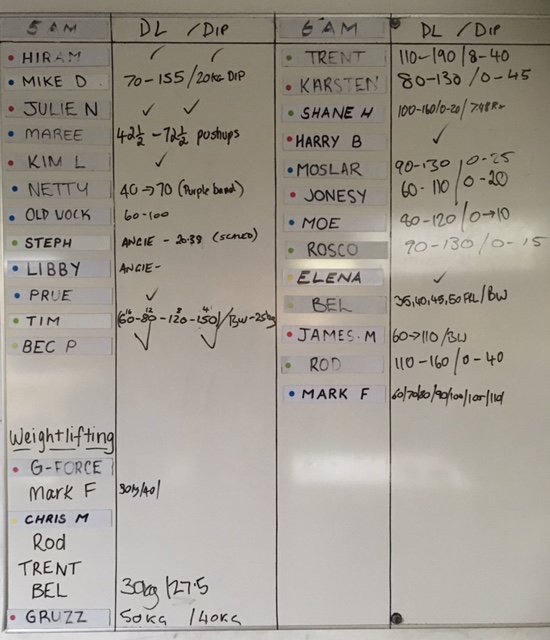 5 AM DL / DIP
HIRAM
MIKE D 70-155/20kg DIP
JULIE N ✓ ✓
MAREE 42½-72½ pushups
KIM L ✓
NETTY 40→70 (Purple band)
OLD VOCK 60-100
STEPH ANGIE - 20:38 (SCALED)
LIBBY ANGIE-
PRUE ✓
TIM 60-80-120-150/BW-25kg
BEC P
Weightlifting
G-FORCE
Mark F 30kg/40/
CHRIS M
Rod
TRENT
BEL 30kg/27.5
GRUZZ 50KG /40KG
6 AM DL / DIP
TRENT 110-190/8-40
KARSTEN 80-130/0-45
SHANE H 100-160/0-20/
HARRY B ✓
MOSLAR 90-130/0-25
JONESY 60-110/0-20
MOE 80-120/0→10
ROSCO 90-130/0-15
ELENA ✓
BEL 35,40,45,50 /BW
JAMES.M 60→110/BW
ROD 110-160/0-40
MARK F 60/70/80/90/100/100/110